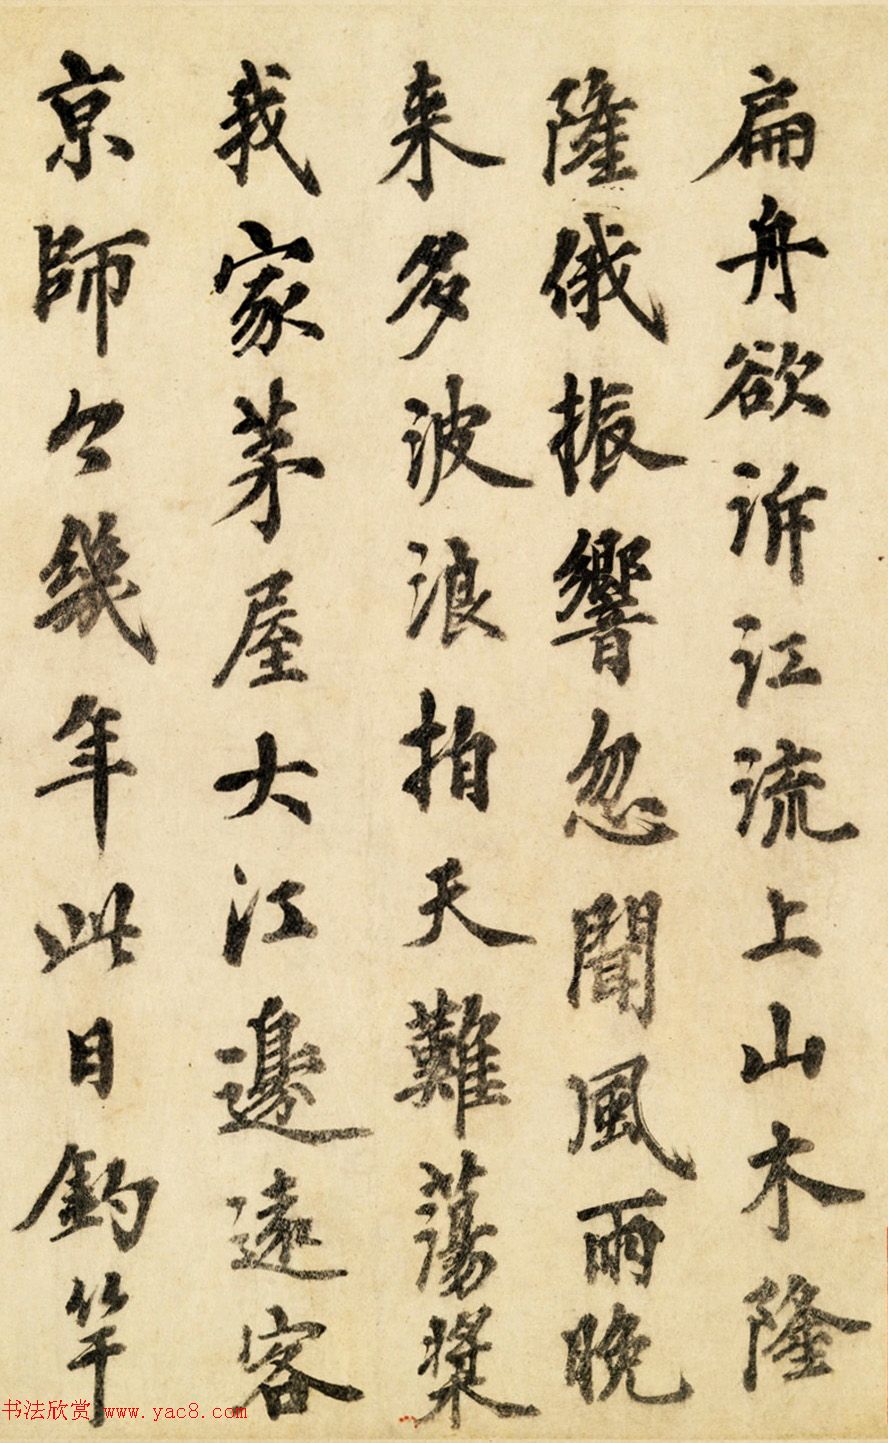 扁舟欲泝江流上山木隆
隆俄振響忽聞風雨晚
来多波浪拍天難蕩槳
我家茅屋大江邊遠客
京師今幾年此日釣竿
书法欣赏 www.yac8.com